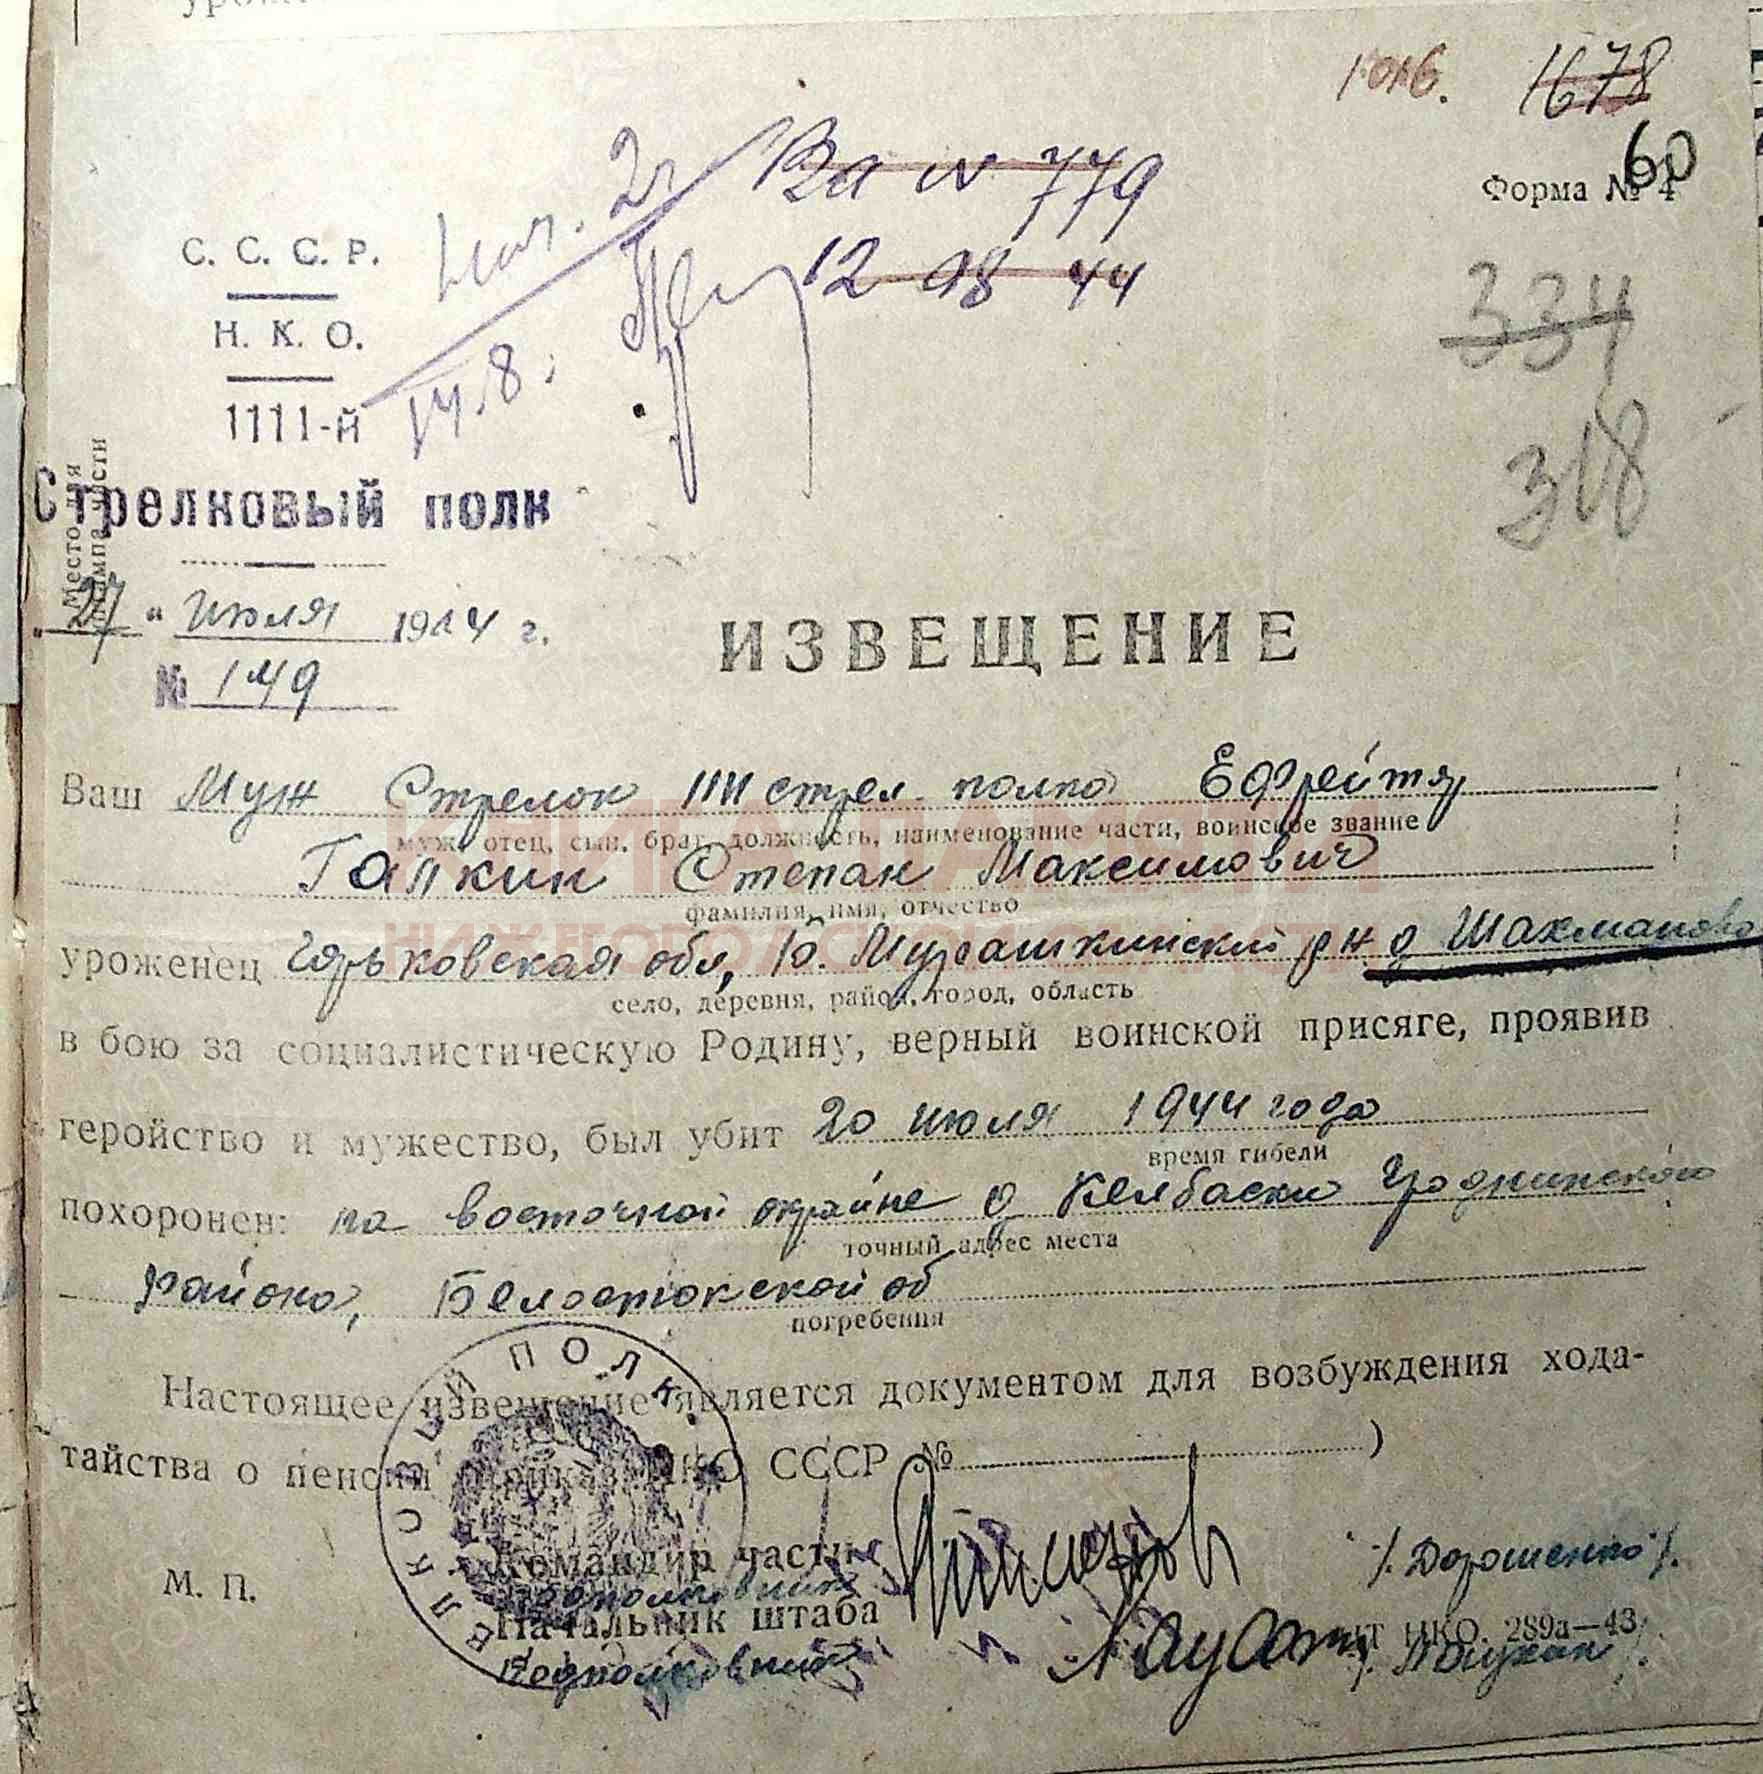 1016. 1678
60
Вх № 779
Форма № 4
12 08 44
14.8.
334
318
С. С. С. Р.
Н. К. О.
1111-й
Стрелковый полк
Место для
штампа части
„27“ июля 1944 г.
№ 149
ИЗВЕЩЕНИЕ
Ваш Муж Стрелок 1111 стрел. полка Ефрейтор
муж, отец, сын, брат, должность, наименование части, воинское звание
Гапкин Степан Максимович
фамилия, имя, отчество
уроженец Горьковская обл, Б. Мурашкинский р-н д Шахманово
село, деревня, район, город, область
в бою за социалистическую Родину, верный воинской присяге, проявив
геройство и мужество, был убит 20 июля 1944 года
время гибели
похоронен: на восточной окраине д Келбаски Гроднинского
точный адрес места
района, Белостокской об
погребения
Настоящее извещение является документом для возбуждения хода-
тайства о пенсии (приказ НКО СССР № )
М. П.
Командир части
подполковник /Дорошенко/.
Начальник штаба
подполковник
НКО 289а—43